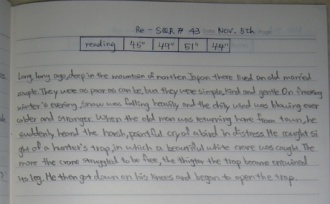 Re - SQR # 43 Nov. 5th
reading 45" 49" 51" 44"
Long, long ago, deep in the mountain of northen Japan there lived an old married
couple. They were as poor as can be, but they were simple, kind and gentle. On freezing
winter's evening, snow was falling heavily and the chilly wind was blowing ever
colder and stronger. When the old man was returning home from town, he
suddenly heard the harsh, painful cry of a bird in distress. He caught si
ght of a hunter's trap, in which a beautiful white crane was caught. The
more the crane struggled to be free, the thigter the trap became
to leg. He then got down on his knees and began to open the trap.